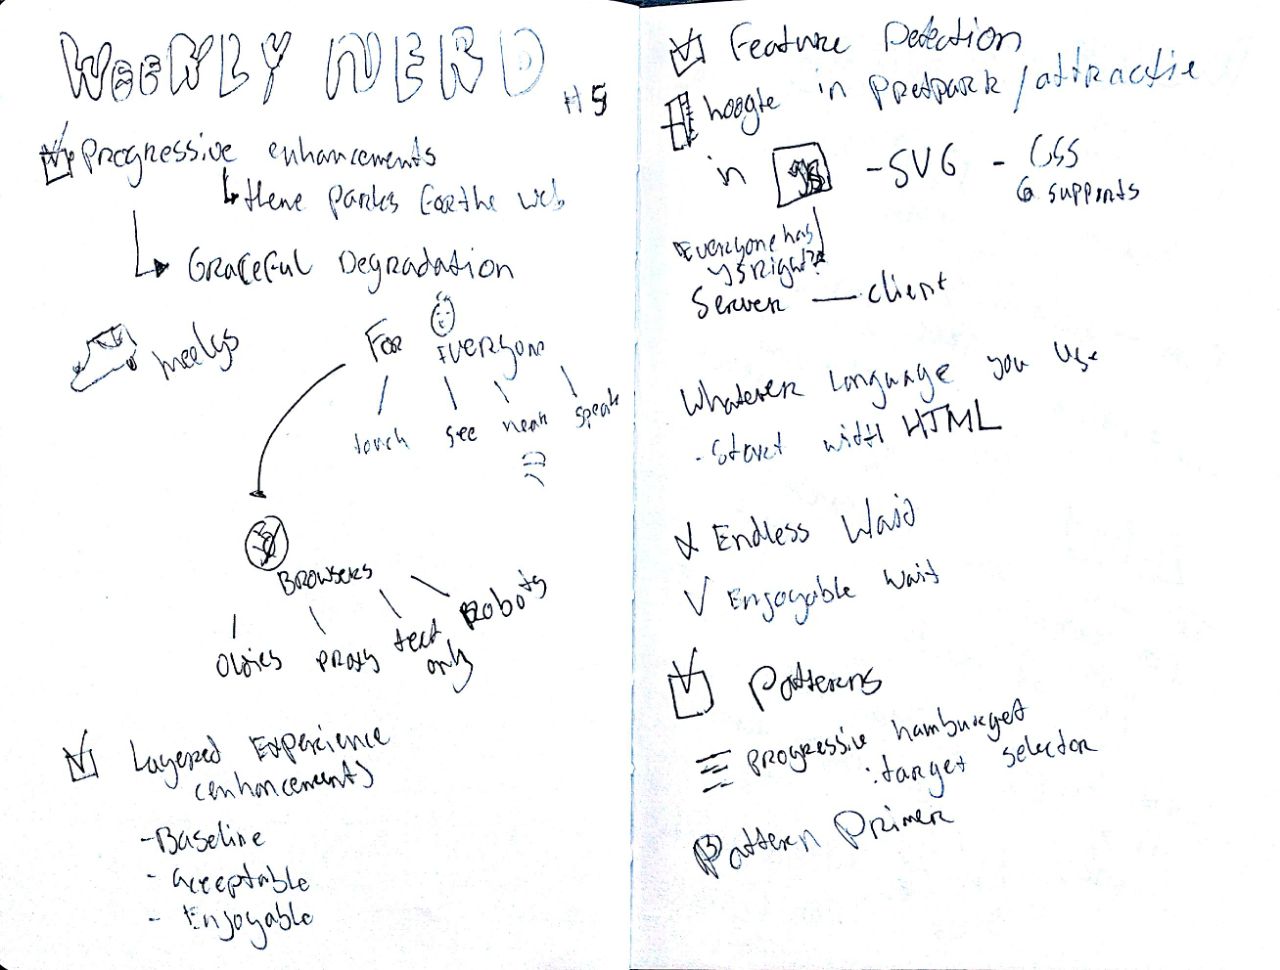 WEEKLY NERD
#5
Progressive enhancements
Theme Parks for the web
Graceful Degradation
heelys
For Everyone
touch see hear speak
Browsers
Oldies proxy text only Robots
Layered Experience
(enhancements)
- Baseline
- acceptable
- Enjoyable
Feature Detection
hoogte in pretpark/attractie
in JS - SVG - CSS
@ supports
Everyone has
JS right?
Server — client
Whatever language you use
- Start with HTML
X Endless Waid
V Enjoyable wait
Patterns
progressive hamburger
:target selector
Pattern Primer